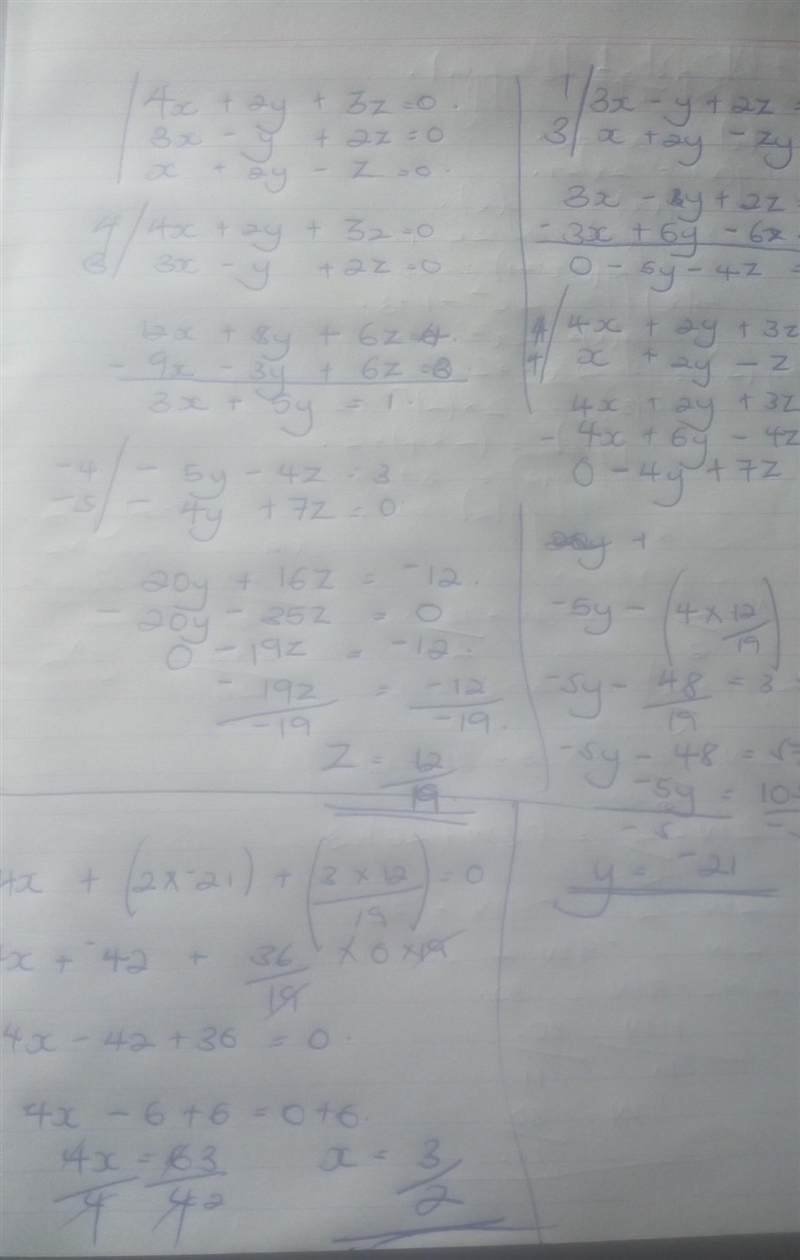 4x + 2y + 3z = 0.
3x - y + 2z = 0
x + 2y - z = 0.
4 / 4x + 2y + 3z = 0
3 / 3x - y + 2z = 0
12x + 8y + 6z = 4.
- 9x - 3y + 6z = 3.
3x + 5y = 1.
-4 / - 5y - 4z = 3
-5 / - 4y + 7z = 0
20y + 16z = -12.
- 20y - 35z = 0
0 - 19z = -12.
- 19z = -12
-19 -19.
z = 12
19
1 / 3x - y + 2z =
3 / x + 2y - zy
3x - y + 2z =
- 3x + 6y - 6z
0 - 5y - 4z =
4x + 2y + 3z
4 / x + 2y - z
4x + 2y + 3z
- 4x + 6y - 4z
0 - 4y + 7z
-5y - (4 x 12
19)
-5y - 48 = 3
19
-5y - 48 = 5
-5y = 10
-5
y = -21
4x + (2 x -21) + (3 x 12) = 0
19
x + -42 + 36 x 0 x 19
19
4x - 42 + 36 = 0.
4x - 6 + 6 = 0 + 6.
4x = 63
4 42
x = 3
2